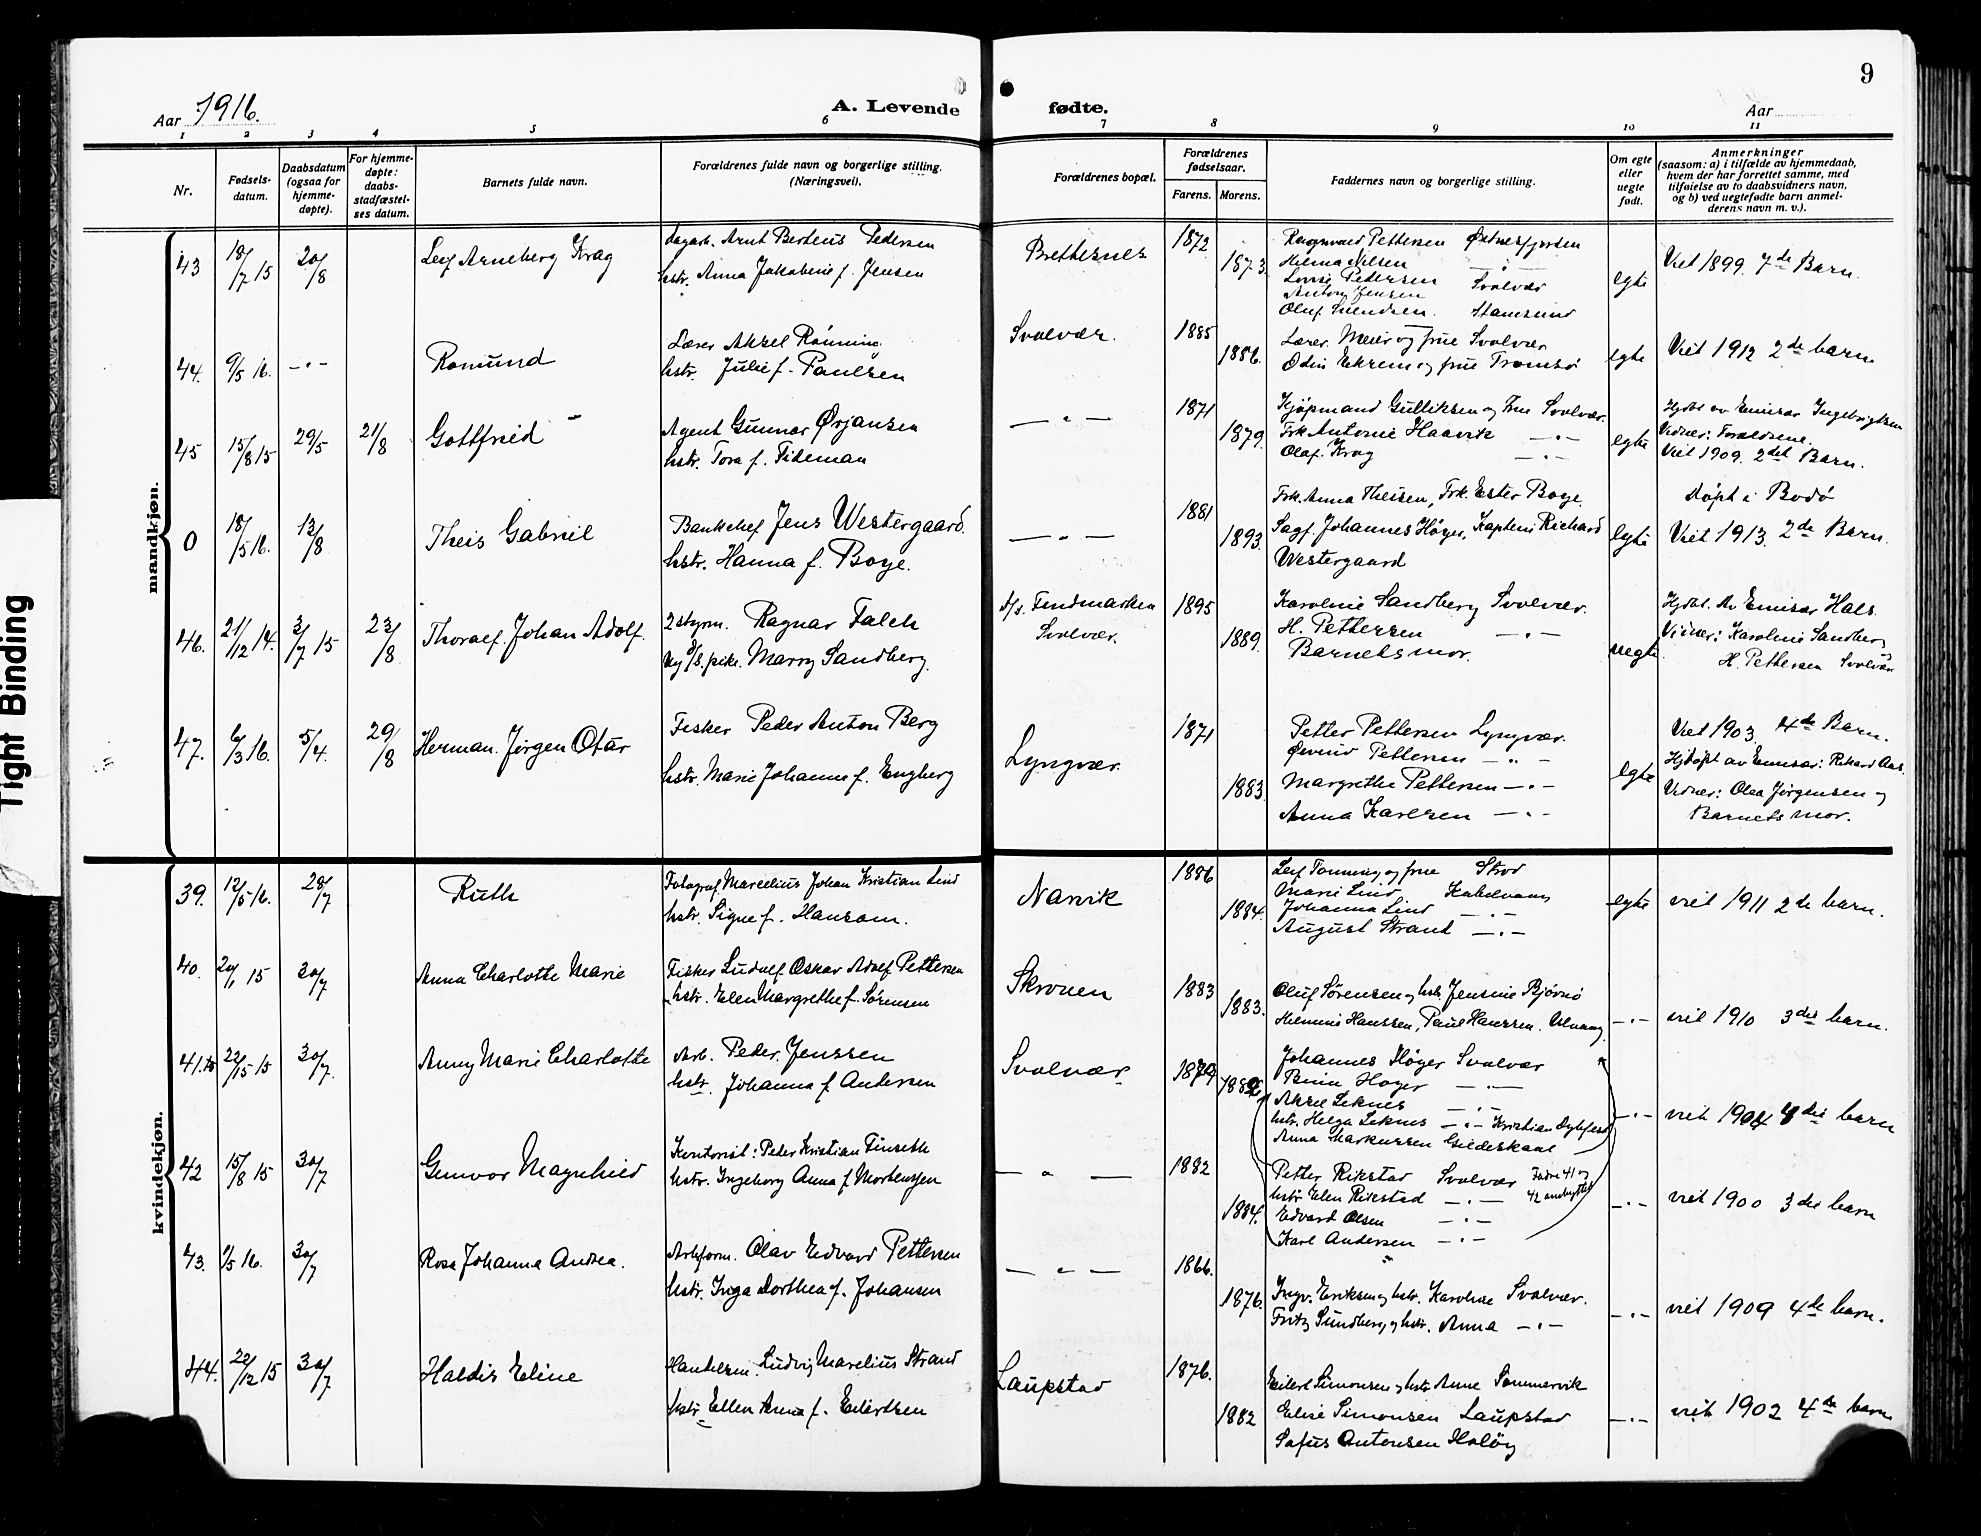 9
Aar 1916.
A. Levende fødte.
Aar
1 2 3 4 5 6 7 8 9 10 11
Nr.
Fødsels-
datum.
Daabsdatum
(ogsaa for
hjemme-
døpte).
For hjemme-
døpte:
daabs-
stadfæstel-
ses datum.
Barnets fulde navn.
Forældrenes fulde navn og borgerlige stilling.
(Næringsvei).
Forældrenes bopæl.
Forældrenes
fødselsaar.
Farens. Morens.
Faddernes navn og borgerlige stilling.
Om egte
eller
uegte
født.
Anmerkninger
(saasom: a) i tilfælde av hjemmedaab,
hvem der har forrettet samme, med
tilføielse av to daabsvidners navn,
og b) ved uegtefødte barn anmel-
derens navn m. v.).
mandkjøn.
43 18/7 15 20/8 Leif Arneberg Krag
Dagarb. Arnt Berteus Pedersen
hstr. Anna Jakobine f. Jensen
Brettesnes 1872 1873
Ragnvald Pettersen Østnesfjorden
Helma Nilsen
Lovise Pedersen Svolvær
Antony Jensen
Oluf Svendsen. Stamsund
egte
Viet 1899. 7de Barn.
44. 9/5 16. — " — Romund
Lærer Aksel Rønning
hstr. Julie f. Paulsen
Svolvær. 1885 1886.
Lærer Meier og frue Svolvær
Odin Ekrem og frue Tromsø
egte
Viet 1912 2de barn
45 15/8 15 29/5 21/8 Gottfried
Agent Gunnar Ørjansen
hstr. Tora f. Tideman
— " — 1871 1879.
Kjøpmand Gulliksen og Frue Svolvær.
Frk Antonie Haavik — " —
Olaf. Krog — " —
egte
Hjdbt av Emisær Ingebrigtsen
Vidner: Forældrene.
Viet 1909. 2det Barn.
0 18/5 16. 13/8 Theis Gabriel
Bankchef Jens Westergaard.
hstr. Hanna f. Boye.
— " — 1881 1893.
Frk. Anna Theisen, Frk. Ester Boye
Sagf. Johannes Høyer, Kaptein Richard
Westergaard
egte
Døpt i Bodø
Viet 1913. 2de Barn.
46. 21/12 14. 3/7 15 23/8 Thoralf Johan Adolf.
2styrm. Ragnar Falch
Ug D/S. pike. Marry Sandberg.
D/S. Findmarken
Svolvær. 1895 1889.
Karoline Sandberg Svolvær.
H. Pettersen — " —
Barnets mor.
uegte.
Hjdbt. Av Emisær Hals
Vidner: Karoline Sandberg
H. Pettersen Svolvær
47. 6/3 16. 5/4. 29/8 Herman Jørgen Otar
Fisker Peder Anton Berg
hstr. Marie Johanne f. Engberg
Lyngvær. 1871 1883.
Petter Pettersen Lyngvær.
Øivind Pettersen — " —
Margrethe Pettersen — " —
Anna Karlsen — " —
egte
Viet 1903. 4de Barn.
Hjdøpt av Emisær: Rikard Aas.
Vidner: Olea Jørgensen og
Barnets mor.
kvindekjøn.
39. 12/5 16. 28/7 Ruth
Fotograf. Marcelius Johan Kristian Lind
hstr. Signe f. Hansom.
Narvik 1886 1884.
Leif Tønning og frue
Marie Lind Kabelvaag
Johanna Lind — " —
August Strand — " —
egte
viet 1911 2de barn.
40. 20/1 15 30/7 Anna Charlotte Marie
Fisker Ludolf Oskar Adolf Pettersen
hstr. Elen Margrethe f. Sørensen
Skroven 1883 1883.
Oluf Sørensen og hstr. Jensine
Helmine Hanssen, Paul Hanssen.
— " —
viet 1910 3die barn.
41. 30/7. Anny Marie Charlotte
Arb. Peder. Jenssen
hstr. Johanna f. Andersen
Svolvær
Johannes Høyer Svolvær
Høyer — " —
Aksel Leknes — " —
hstr. Helga Leknes — " — Kristian Dybfest
Anna Markussen Gildeskaal
— " —
viet 1904 4die barn
42 15/8 15 30/7 Gunvor Magnhild
Kontorist: Peder Kristian Finseth
hstr. Ingeborg Anna f Mortenssen
— " — 1882 1884.
Petter Rikstad Svolvær Fadre 41 og
hstr. Elen Rikstad — " — 42 ombyttet
Edvard Olsen — " —
Karl Andersen — " —
— " —
viet 1900 3die barn
43. 1/5 16. 30/7 Rosa Johanna Andrea.
Arbform. Olav Edvard Pettersen
hstr. Inga Dorthea f. Johansen
— " — 1866. 1876.
Ingv. Eriksen og hstr. Karoline Svolvær.
Fritz Sundberg og hstr. Anna — " —
— " —
viet 1909 4de barn.
44. 22/12 15 30/7 Haldis Eline
Handelsm. Ludvig Marelius Strand
hstr Ellen Anna f. Edvardsen
Laupstad 1876. 1882
Eilert Simonsen og hstr Anne Sommervik
Elise Simonsen Laupstad
Sofus Antonsen Holøy
— " —
viet 1902 4de barn
Tight Binding